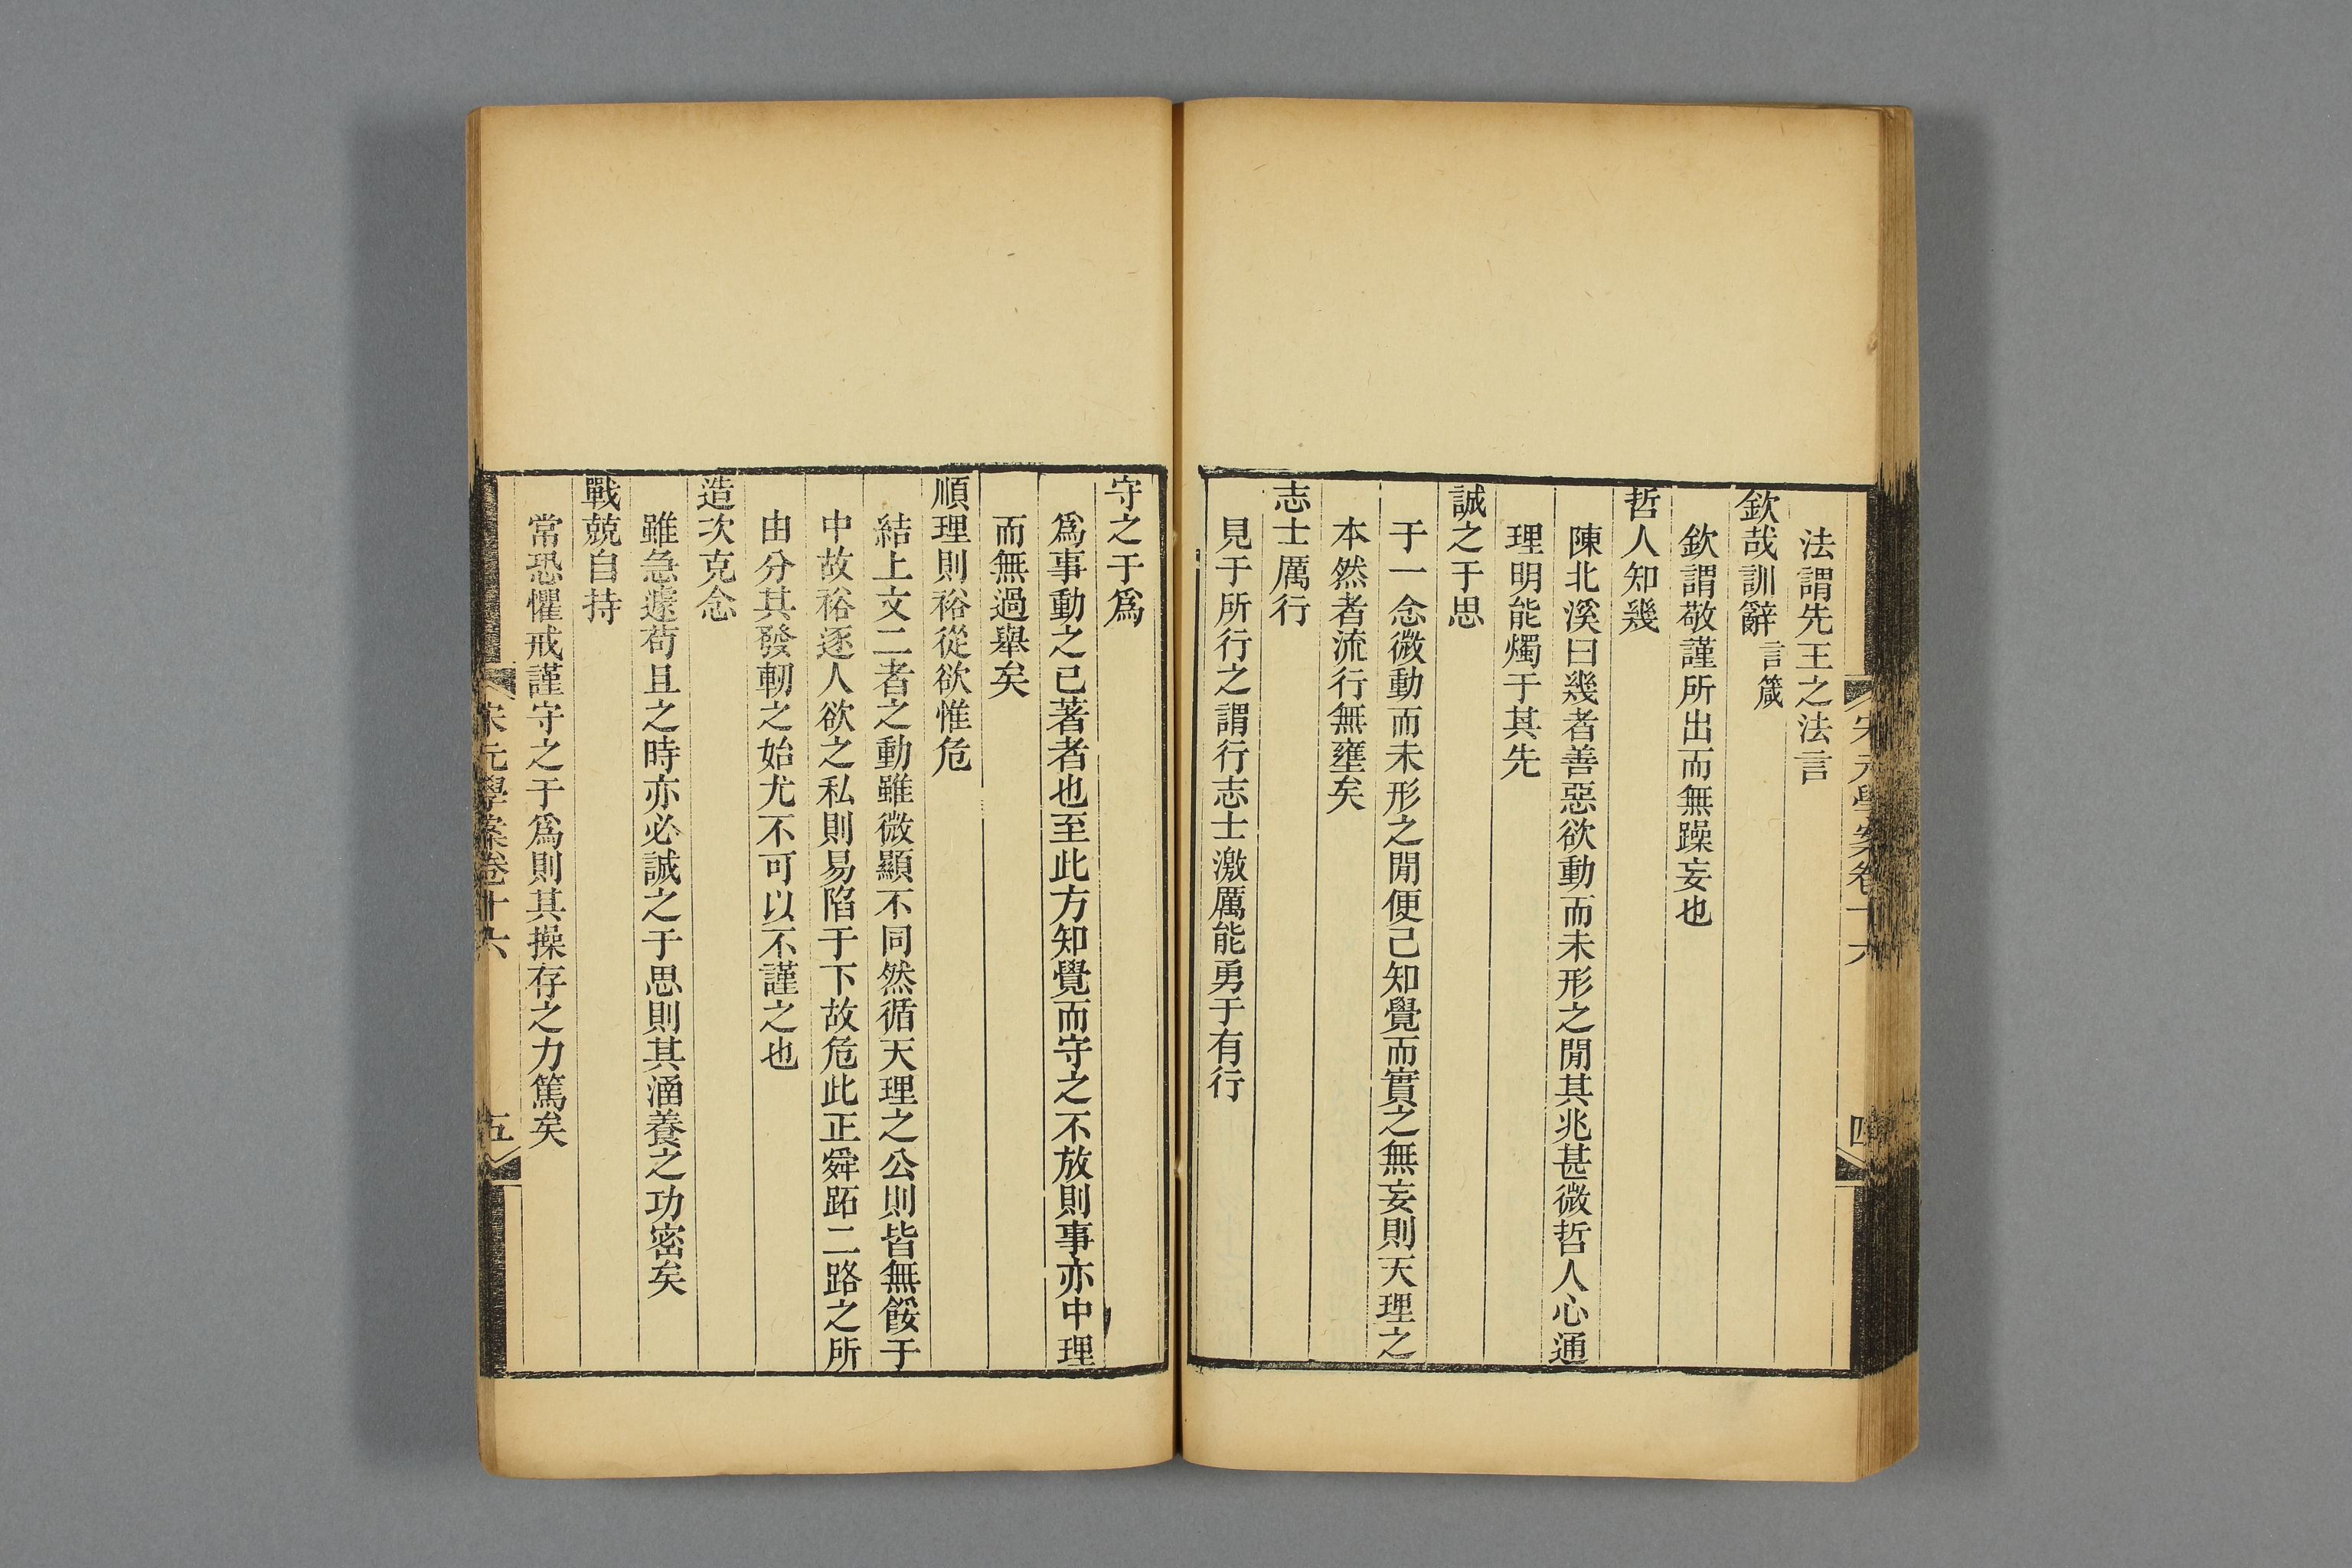 宋元學案卷十六
四
法謂先王之法言
欽哉訓辭言箴
欽謂敬謹所出而無躁妄也
哲人知幾
陳北溪曰幾者善惡欲動而未形之閒其兆甚微哲人心通
理明能燭于其先
誠之于思
于一念微動而未形之閒便己知覺而實之無妄則天理之
本然者流行無壅矣
志士厲行
見于所行之謂行志士激厲能勇于有行
守之于爲
爲事動之已著者也至此方知覺而守之不放則事亦中理
而無過舉矣
順理則裕從欲惟危
結上文二者之動雖微顯不同然循天理之公則皆無餒于
中故裕逐人欲之私則易陷于下故危此正舜跖二路之所
由分其發軔之始尤不可以不謹之也
造次克念
雖急遽苟且之時亦必誠之于思則其涵養之功密矣
戰兢自持
常恐懼戒謹守之于爲則其操存之力篤矣
宋元學案卷十六
五